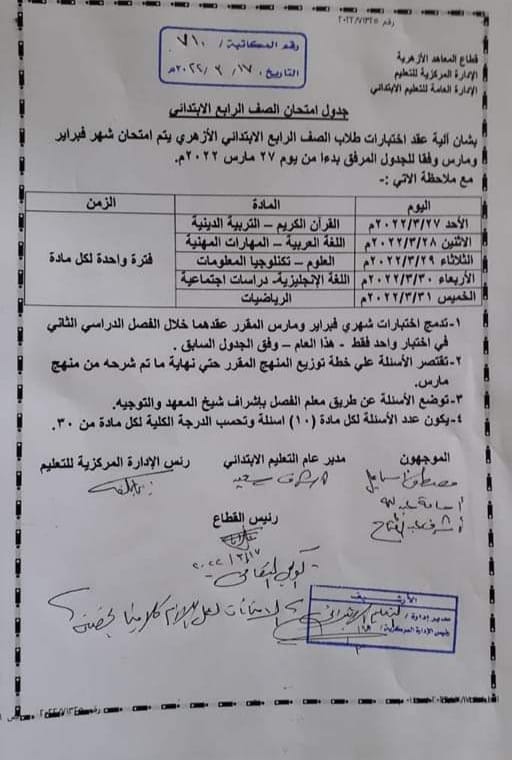 رقم ٢٠٢٢/٧١٣٤٥
رقم المكاتبة / ٧١٠
التاريخ، ١٧ / ٣ / ٢٠٢٢م
قطاع المعاهد الأزهرية
الإدارة المركزية للتعليم
الإدارة العامة للتعليم الابتدائي
جدول امتحان الصف الرابع الابتدائي
بشان ألية عقد اختبارات طلاب الصف الرابع الابتدائي الأزهري يتم امتحان شهر فبراير
ومارس وفقا للجدول المرفق بدءا من يوم ٢٧ مارس ٢٠٢٢م.
مع ملاحظة الاتي :-
اليوم المادة الزمن
الأحد ٢٠٢٢/٣/٢٧م القرآن الكريم – التربية الدينية
الاثنين ٢٠٢٢/٣/٢٨م اللغة العربية – المهارات المهنية
الثلاثاء ٢٠٢٢/٣/٢٩م العلوم – تكنلوجيا المعلومات فترة واحدة لكل مادة
الأربعاء ٢٠٢٢/٣/٣٠م اللغة الإنجليزية- دراسات اجتماعية
الخميس ٢٠٢٢/٣/٣١م الرياضيات
١-تدمج اختبارات شهري فبراير ومارس المقرر عقدهما خلال الفصل الدراسي الثاني
في اختبار واحد فقط - هذا العام – وفق الجدول السابق .
٢-تقتصر الأسئلة علي خطة توزيع المنهج المقرر حتي نهاية ما تم شرحه من منهج
مارس.
٣-توضع الأسئلة عن طريق معلم الفصل بإشراف شيخ المعهد والتوجيه.
٤-يكون عدد الأسئلة لكل مادة (١٠) اسئلة وتحسب الدرجة الكلية لكل مادة من ٣٠.
الموجهون مدير عام التعليم الابتدائي رئس الإدارة المركزية للتعليم
أشرف عبد الفتاح
رئيس القطاع
الأزهر الشريف
مدير إدارة /
رئيس الإدارة المركزية /